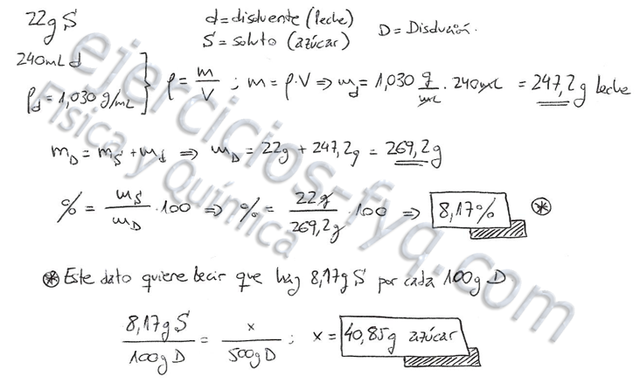 22g S
d = disolvente (leche)
S = soluto (azúcar)
D = Disolución.
240mL d
ρd = 1,030 g/mL
ρ = m/V ; m = ρ·V ⇒ md = 1,030 g/mL · 240mL = 247,2g leche
mD = mS + md ⇒ mD = 22g + 247,2g = 269,2g
% = mS/mD · 100 ⇒ % = 22g/269,2g · 100 ⇒ 8,17% *
* Este dato quiere decir que hay 8,17g S por cada 100g D
8,17g S/100g D = x/500g D ; x = 40,85g azúcar
ejercicios-fyq.com
Física y Química